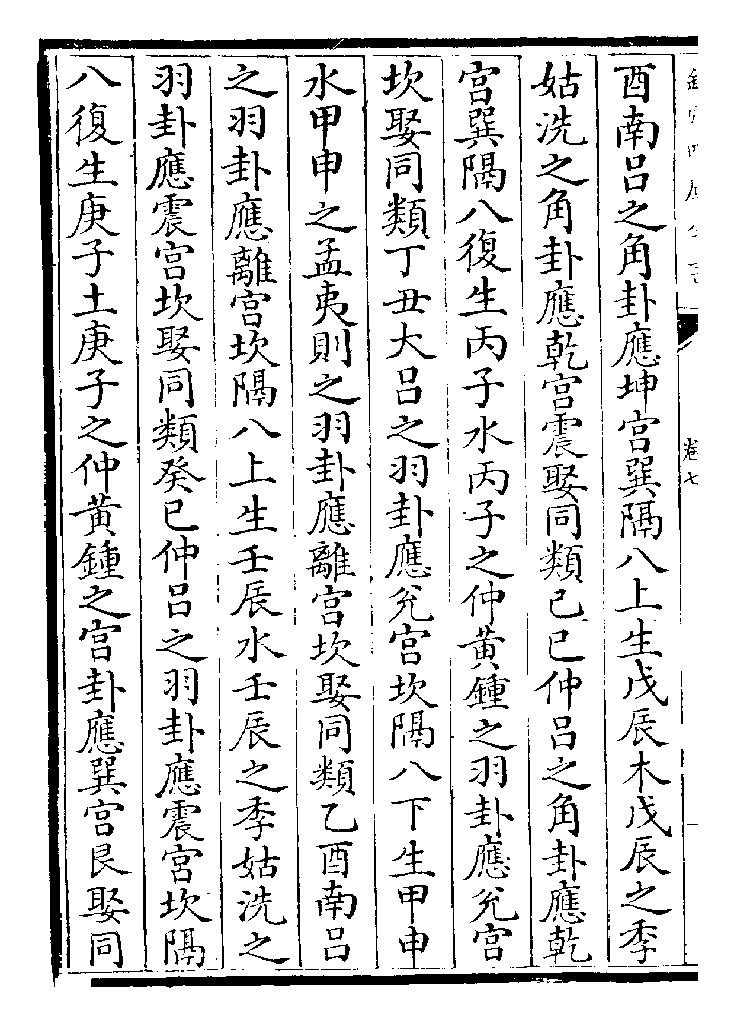 酉南吕之角卦應坤宫巽隔八上生戊辰木戊辰之季
姑洗之角卦應乾宫震娶同類己巳仲吕之角卦應乾
宫巽隔八復生丙子水丙子之仲黄鍾之羽卦應兊宫
坎娶同類丁丑大吕之羽卦應兊宫坎隔八下生甲申
水甲申之孟夷則之羽卦應離宫坎娶同類乙酉南吕
之羽卦應離宫坎隔八上生壬辰水壬辰之季姑洗之
羽卦應震宫坎娶同類癸巳仲吕之羽卦應震宫坎隔
八復生庚子土庚子之仲黄鍾之宫卦應巽宫艮娶同
卷七